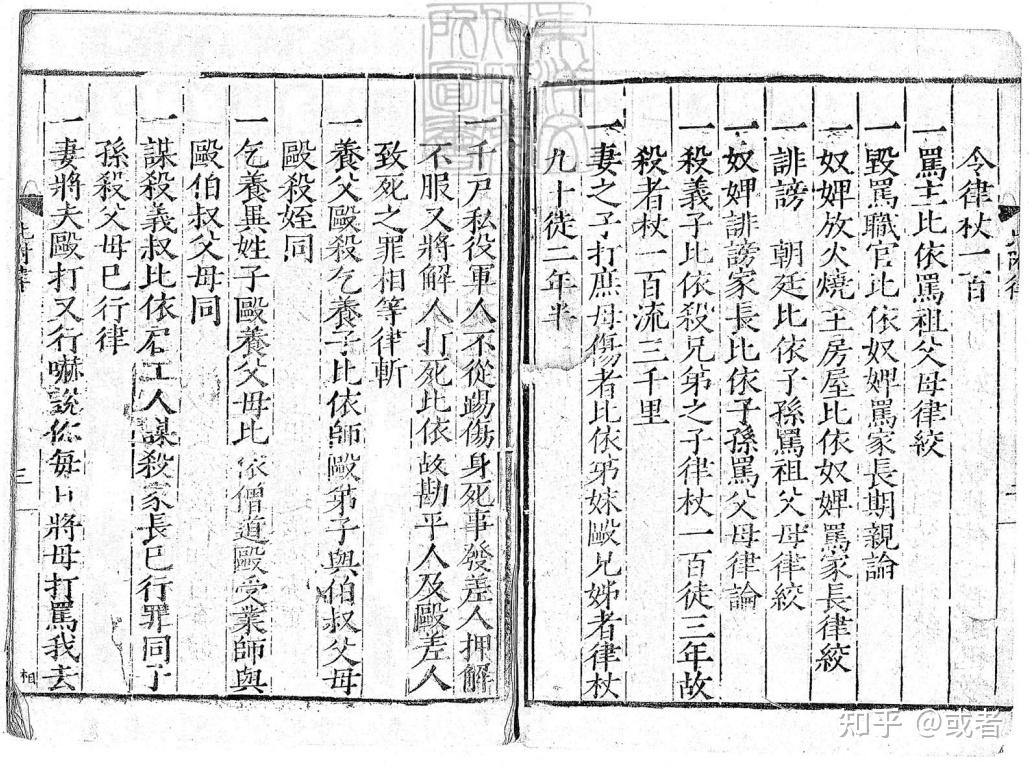 令律杖一百
一罵主比依罵祖父母律絞
一毀罵職官比依奴婢罵家長期親論
一奴婢放火燒主房屋比依奴婢罵家長律絞
一誹謗　朝廷比依子孫罵祖父母律絞
一奴婢誹謗家長比依子孫罵父母律論
一殺義子比依殺兄弟之子律杖一百徒三年故
殺者杖一百流三千里
一妻之子打庶母傷者比依弟妹毆兄姊者律杖
九十徒二年半
一千戶私役軍人不從踢傷身死事發差人押解
不服又將解人打死比依故勘平人及毆差人
致死之罪相等律斬
一養父毆殺乞養子比依師毆弟子與伯叔父母
毆殺姪同
一乞養異姓子毆養父母比依僧道毆受業師與
毆伯叔父母同
一謀殺義叔比依雇工人謀殺家長已行罪同了
孫殺父母已行律
一妻將夫毆打又行嚇說你每日將母打罵我去
三
相
知乎 @或者